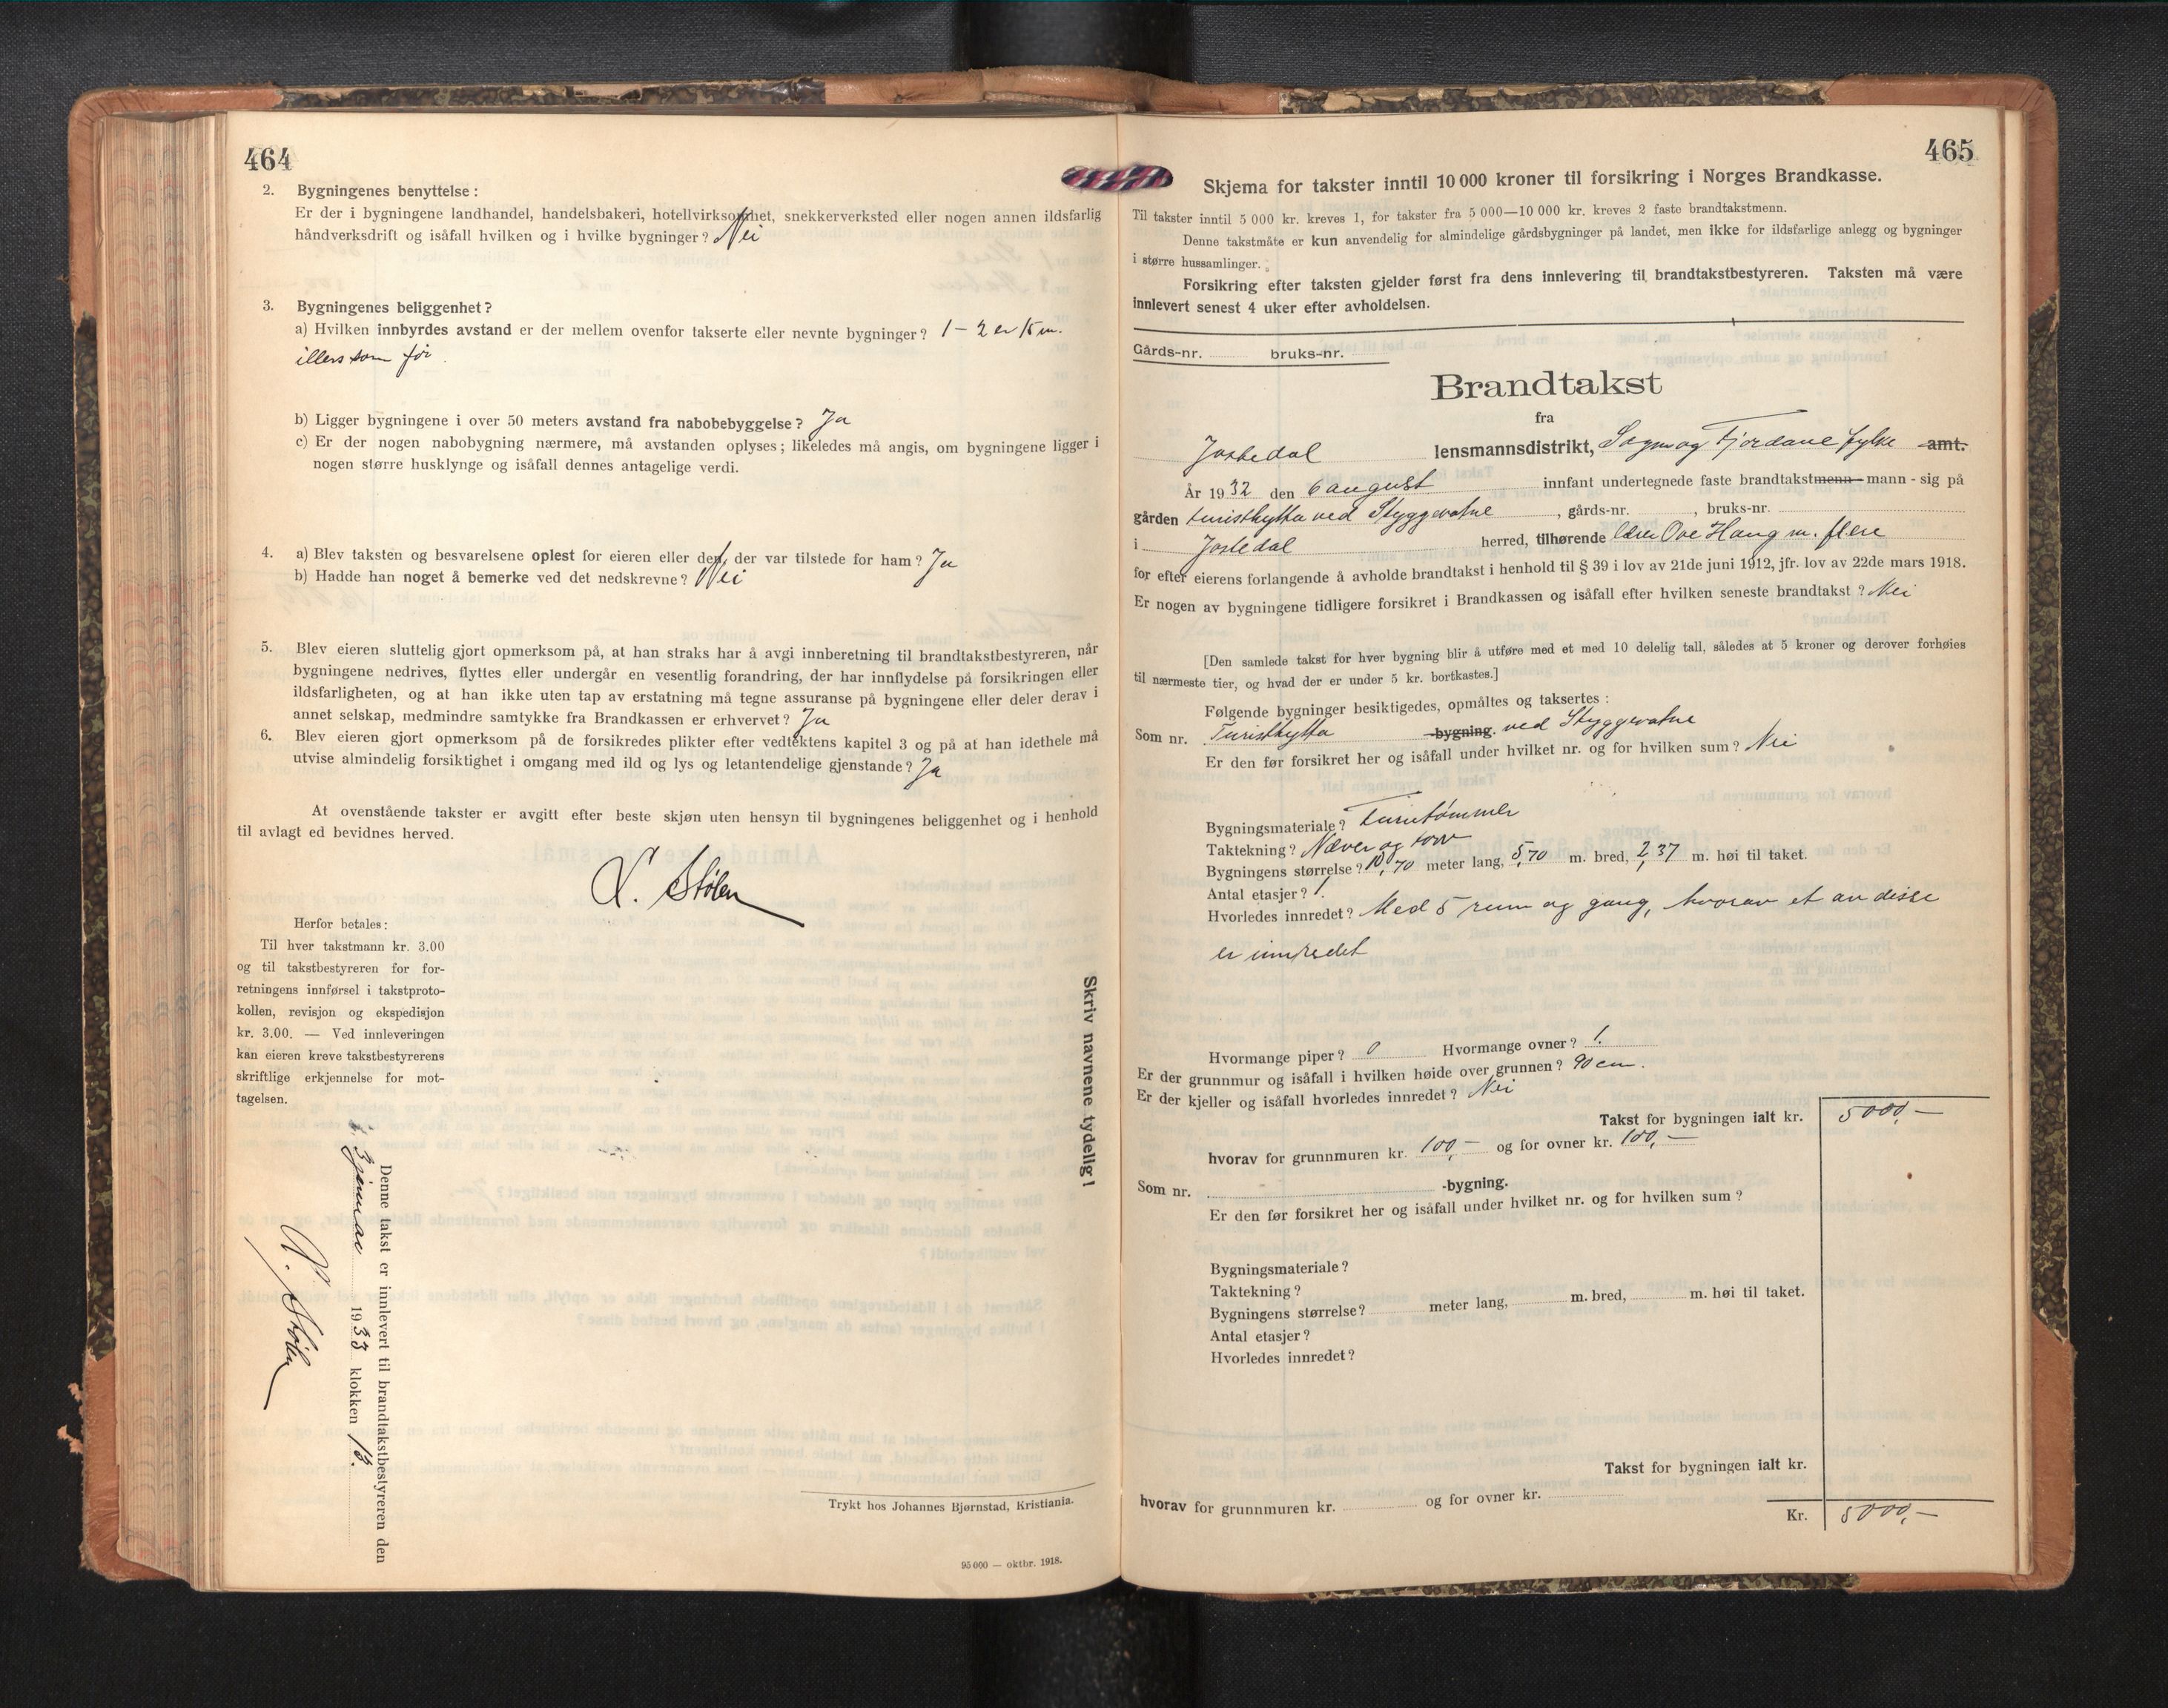 464
2. Bygningenes benyttelse :
Er der i bygningene landhandel, handelsbakeri, hotellvirksomhet, snekkerverksted eller nogen annen ildsfarlig
håndverksdrift og isåfall hvilken og i hvilke bygninger? Nei
3. Bygningenes beliggenhet?
a) Hvilken innbyrdes avstand er der mellem ovenfor takserte eller nevnte bygninger? 1 – 2 er 15 m.
illers som før
b) Ligger bygningene i over 50 meters avstand fra nabobebyggelse? Ja
c) Er der nogen nabobygning nærmere, må avstanden oplyses; likeledes må angis, om bygningene ligger i
nogen større husklynge og isåfall dennes antagelige verdi.
4. a) Blev taksten og besvarelsene oplest for eieren eller den, der var tilstede for ham? Ja
b) Hadde han noget å bemerke ved det nedskrevne? Nei
5. Blev eieren sluttelig gjort opmerksom på, at han straks har å avgi innberetning til brandtakstbestyreren, når
bygningene nedrives, flyttes eller undergår en vesentlig forandring, der har innflydelse på forsikringen eller
ildsfarligheten, og at han ikke uten tap av erstatning må tegne assuranse på bygningene eller deler derav i
annet selskap, medmindre samtykke fra Brandkassen er erhvervet? Ja
6. Blev eieren gjort opmerksom på de forsikredes plikter efter vedtektens kapitel 3 og på at han idethele må
utvise almindelig forsiktighet i omgang med ild og lys og letantendelige gjenstande? Ja
At ovenstående takster er avgitt efter beste skjøn uten hensyn til bygningenes beliggenhet og i henhold
til avlagt ed bevidnes herved.
Stølen
Herfor betales:
Til hver takstmann kr. 3.00
og til takstbestyreren for for-
retningens innførsel i takstproto-
kollen, revisjon og ekspedisjon
kr. 3.00. — Ved innleveringen
kan eieren kreve takstbestyrerens
skriftlige erkjennelse for mot-
tagelsen.
Skriv navnene tydelig!
Denne takst er innlevert til brandtakstbestyreren den
3 januar 1933 klokken 13.
Stølen
Trykt hos Johannes Bjørnstad, Kristiania.
95 000 — oktbr. 1918.
465
Skjema for takster inntil 10 000 kroner til forsikring i Norges Brandkasse.
Til takster inntil 5 000 kr. kreves 1, for takster fra 5 000—10 000 kr. kreves 2 faste brandtakstmenn.
Denne takstmåte er kun anvendelig for almindelige gårdsbygninger på landet, men ikke for ildsfarlige anlegg og bygninger
i større hussamlinger.
Forsikring efter taksten gjelder først fra dens innlevering til brandtakstbestyreren. Taksten må være
innlevert senest 4 uker efter avholdelsen.
Gårds-nr. bruks-nr.
Brandtakst
fra
Jostedal lensmannsdistrikt, Sogn og Fjordane fylke amt.
År 1932 den 6 august innfant undertegnede faste brandtakstmenn - mann - sig på
gården turisthytta ved Styggevatne, gårds-nr. , bruks-nr.
i Jostedal herred, tilhørende lærer Ove Haug m. flere
for efter eierens forlangende å avholde brandtakst i henhold til § 39 i lov av 21de juni 1912, jfr. lov av 22de mars 1918.
Er nogen av bygningene tidligere forsikret i Brandkassen og isåfall efter hvilken seneste brandtakst? Nei
[Den samlede takst for hver bygning blir å utføre med et med 10 delelig tall, således at 5 kroner og derover forhøies
til nærmeste tier, og hvad der er under 5 kr. bortkastes.]
Følgende bygninger besiktigedes, opmåltes og taksertes :
Som nr. Turisthytta -bygning. ved Styggevatne
Er den før forsikret her og isåfall under hvilket nr. og for hvilken sum? Nei
Bygningsmateriale? Furutømmer
Taktekning? Næver og torv
Bygningens størrelse? 10,70 meter lang, 5,70 m. bred, 2,37 m. høi til taket.
Antal etasjer? 1.
Hvorledes innredet? Med 5 rum og gang, hvorav et av disse
er innredet
Hvormange piper? 0 Hvormange ovner? 1.
Er der grunnmur og isåfall i hvilken høide over grunnen? 90 cm.
Er der kjeller og isåfall hvorledes innredet? Nei
Takst for bygningen ialt kr. 5000,—
hvorav for grunnmuren kr. 100,— og for ovner kr. 100,—
Som nr. -bygning.
Er den før forsikret her og isåfall under hvilket nr. og for hvilken sum?
Bygningsmateriale?
Taktekning?
Bygningens størrelse? meter lang, m. bred, m. høi til taket.
Antal etasjer?
Hvorledes innredet?
Takst for bygningen ialt kr.
hvorav for grunnmuren kr. og for ovner kr.
Kr. 5000,—